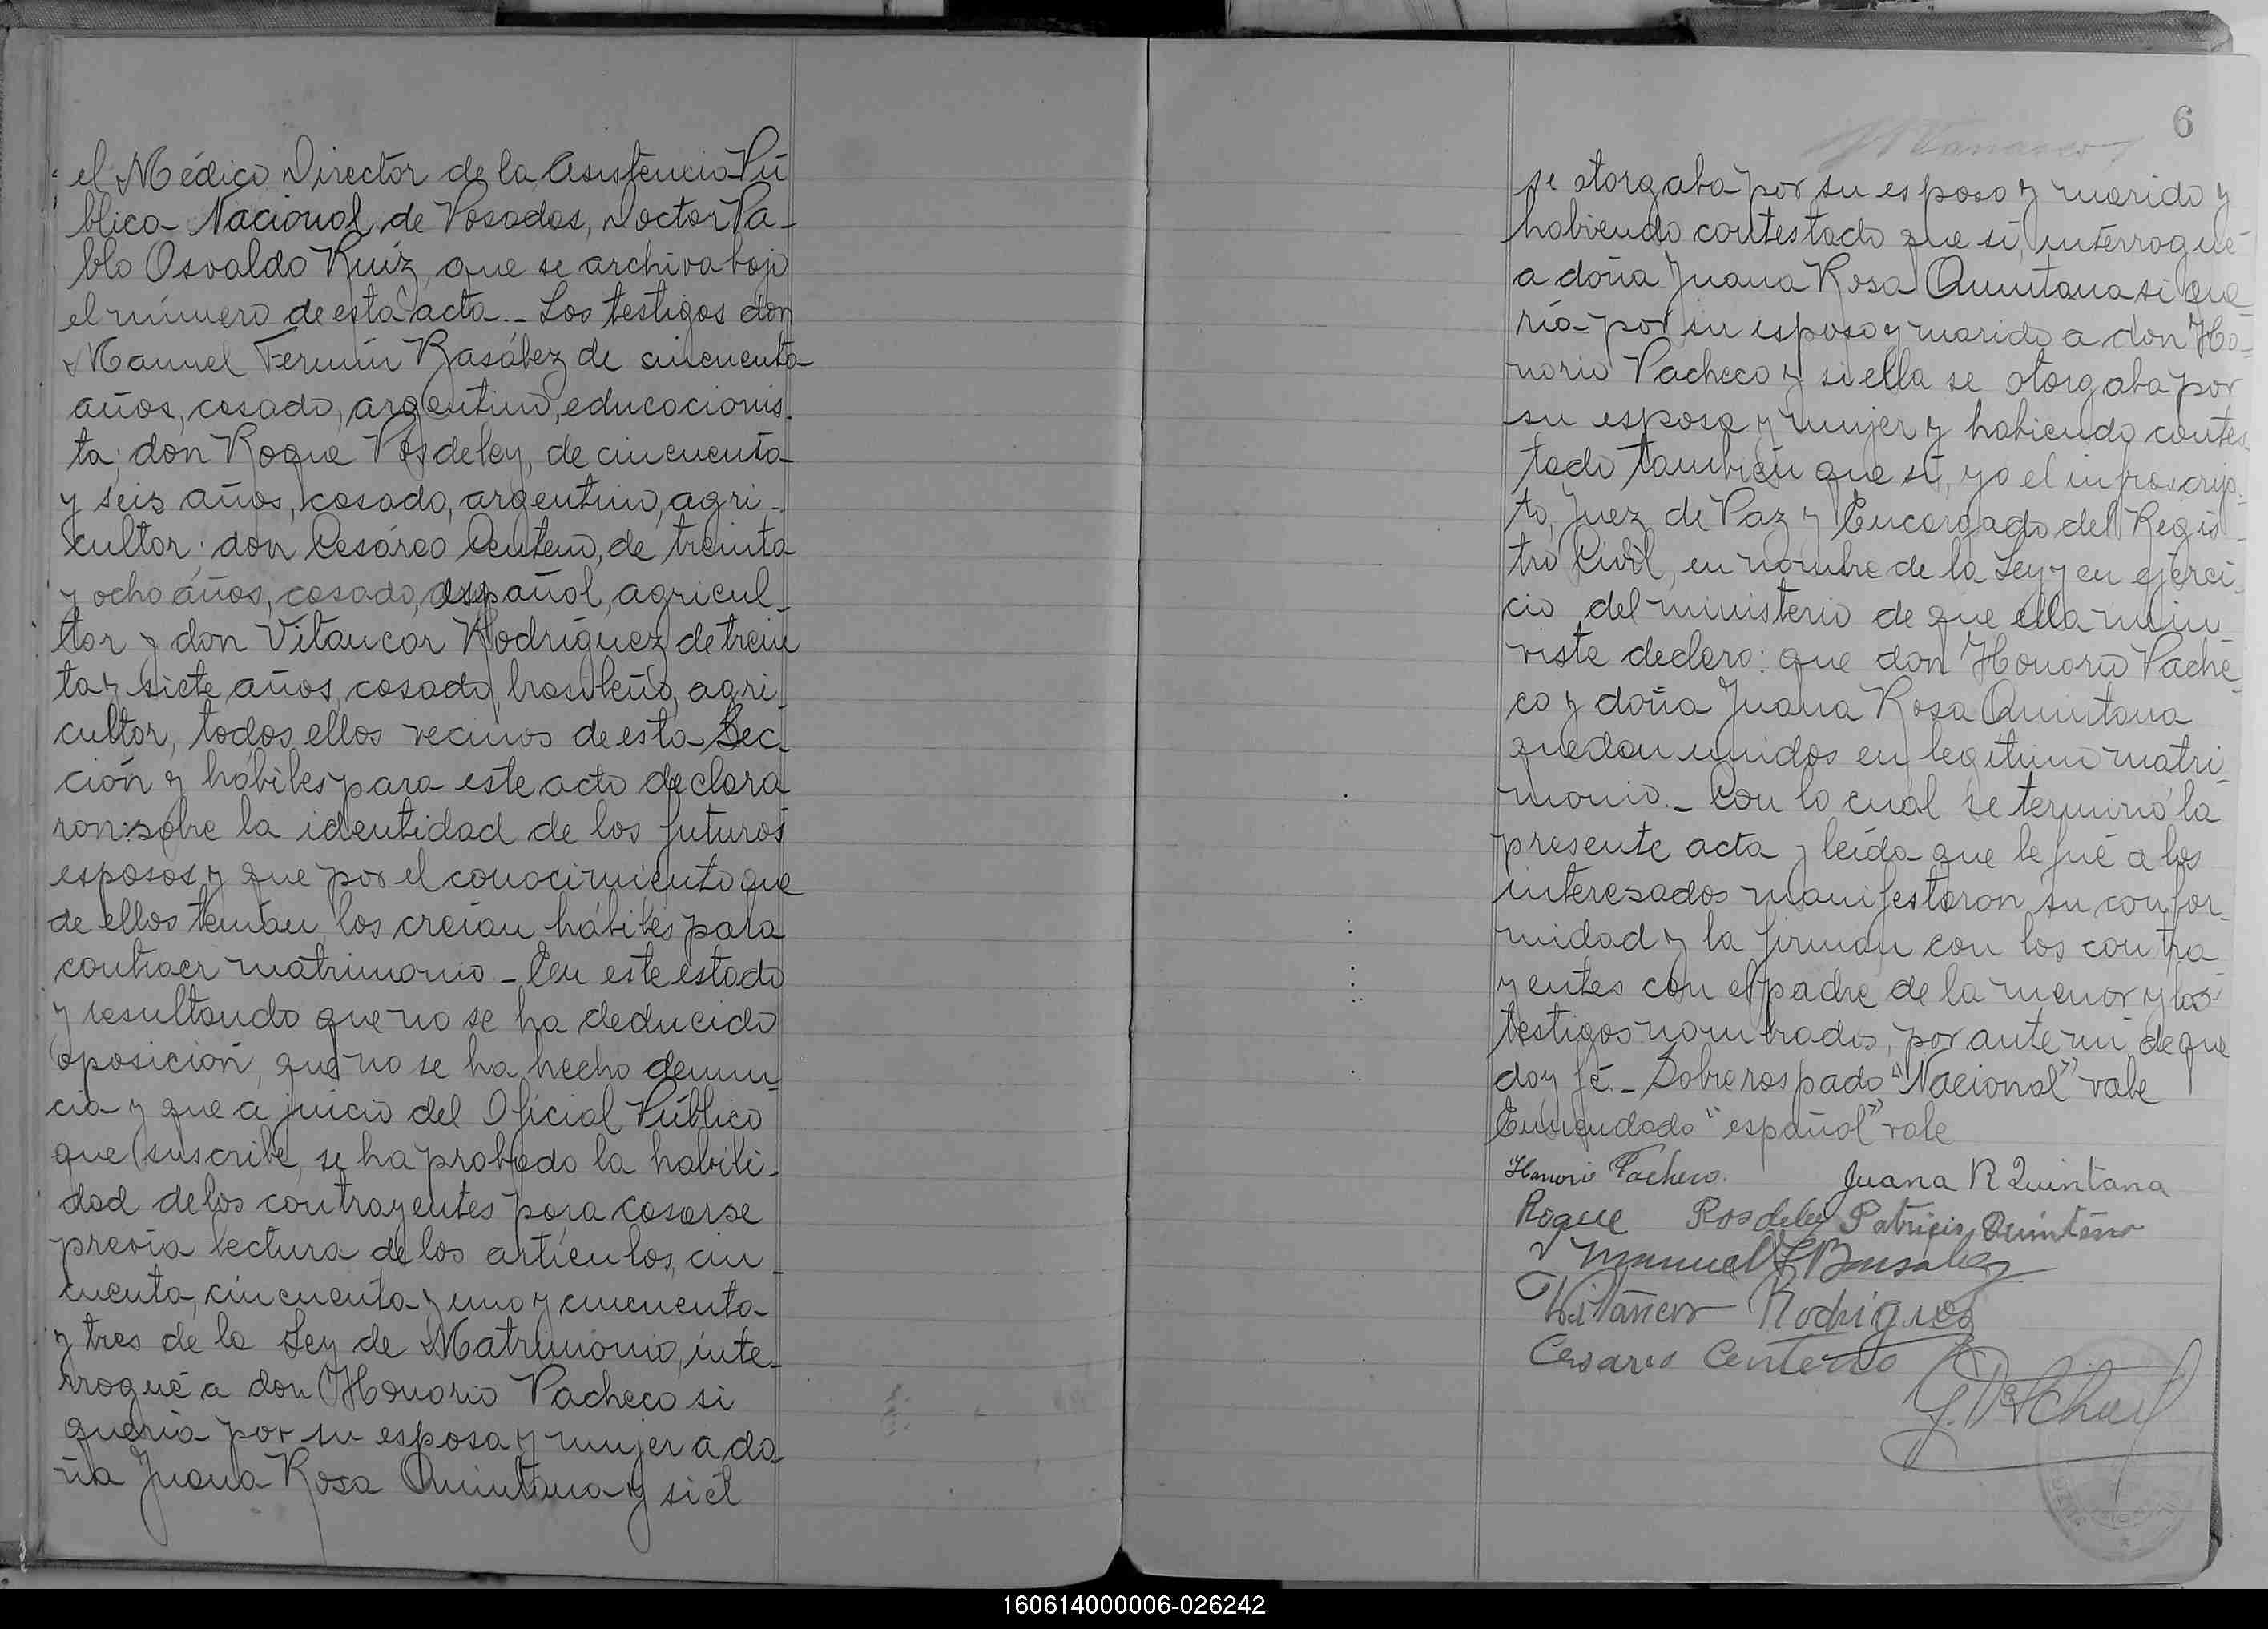 el Médico Director de la Asistencia Pú
blica Nacional de Posadas, Doctor Pa-
blo Osvaldo Ruíz, que se archiva bajo
el número de esta acta.- Los testigos don
Manuel Fermín Basábez de cincuenta
años, casado, argentino, educacionis-
ta; don Roque Rosdeley, de cincuenta
y seis años, casado, argentino, agri-
cultor; don Cesáreo Centeno, de treinta
y ocho años, casado, español, agricul-
tor y don Vitancor Rodríguez de trein
ta y siete años, casado, brasileño, agri-
cultor, todos ellos vecinos de esta Sec-
ción y hábiles para este acto declara
ron: sobre la identidad de los futuros
esposos y que por el conocimiento que
de ellos tenían los creían hábiles para
contraer matrimonio - En este estado
y resultando que no se ha deducido
oposición, que no se ha hecho denun-
cia y que a juicio del Oficial Público
que suscribe, se ha probado la habili-
dad de los contrayentes para casarse
previa lectura de los artículos, cin-
cuenta, cincuenta y uno y cincuenta
y tres de la Ley de Matrimonio, inte-
rrogué a don Honorio Pacheco si
quería por su esposa y mujer a do-
ña Juana Rosa Quintana y si él
6
se otorgaba por su esposo y marido y
habiendo contestado que sí, interrogué
a doña Juana Rosa Quintana si que
ría por su esposo y marido a don Ho-
norio Pacheco y si ella se otorgaba por
su esposa y mujer y habiendo contes-
tado también que sí, yo el infrascrip-
to, Juez de Paz y Encargado del Regis-
tro Civil, en nombre de la Ley y en ejerci-
cio del ministerio de que ella me in-
viste declaro: que don Honorio Pache-
co y doña Juana Rosa Quintana
quedan unidos en legítimo matri-
monio.- Con lo cual se terminó la
presente acta y leída que le fué a los
interesados manifestaron su confor-
midad y la firman con los contra
yentes con el padre de la menor y los
testigos nombrados, por ante mí de que
doy fé.- Sobrerospado "Nacional" vale
Enmendado "español" vale
Honorio Pacheco. Juana R Quintana
Roque Rosdeley Patricio Quintana
Manuel F Basabez
Vitancor Rodriguez
Cesareo Centeno
160614000006-026242